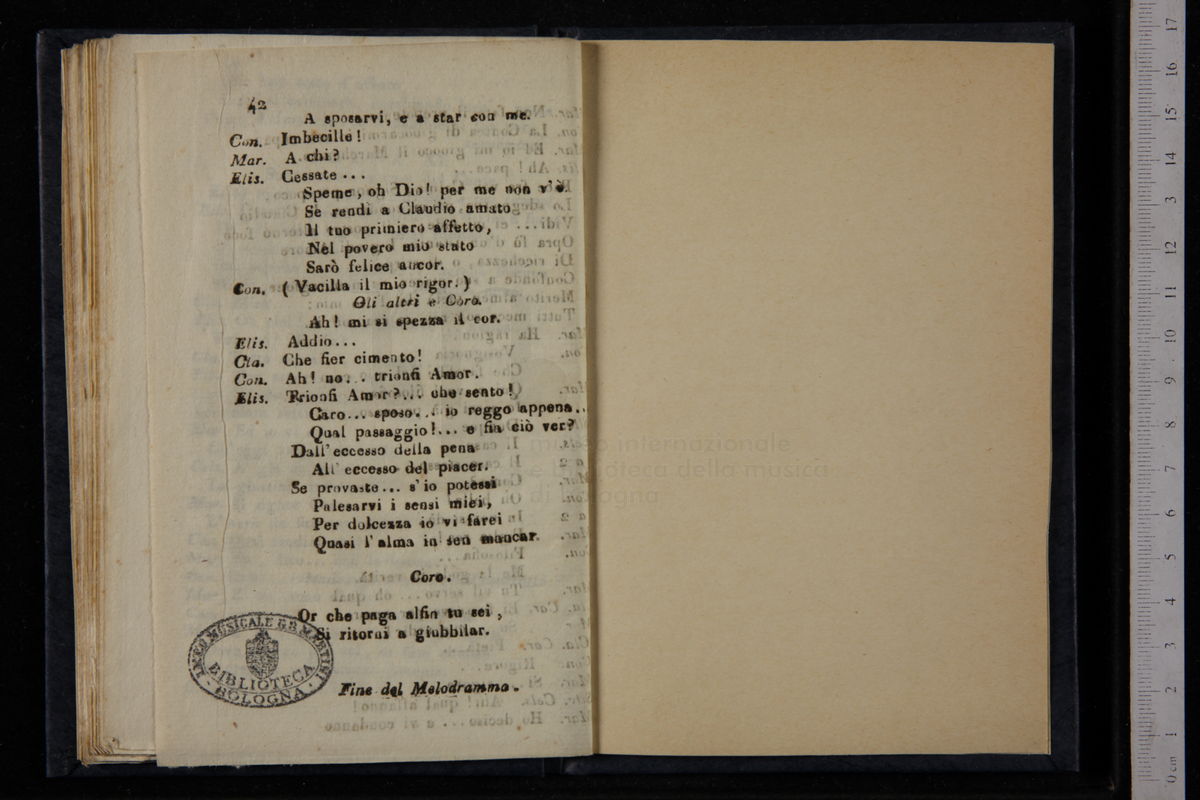 42
A sposarvi, e a star con me.
Con. Imbecille!
Mar. A chi?
Elis. Cessate...
Speme, oh Dio! per me non v'è.
Se rendi a Claudio amato
Il tuo primiero affetto,
Nel povero mio stato
Sarò felice ancor.
Con. (Vacilla il mio rigor.)
Gli altri e Coro.
Ah! mi si spezza il cor.
Elis. Addio...
Cla. Che fier cimento!
Con. Ah! no... trionfi Amor.
Elis. Trionfi Amor?... che sento!
Caro... sposo... io reggo appena..
Qual passaggio!... e fia ciò ver?
Dall'eccesso della pena
All' eccesso del piacer.
Se provaste... s'io potessi
Palesarvi i sensi miei,
Per dolcezza io vi farei
Quasi l'alma in sen mancar.
Coro.
Or che paga alfin tu sei,
Si ritorni a giubbilar.
Fine del Melodramma.
LICEO MUSICALE G.B. MARTINI
BIBLIOTECA
BOLOGNA
museo internazionale
e biblioteca della musica
di bologna
0 cm 1 2 3 4 5 6 7 8 9 10 11 12 13 14 15 16 17